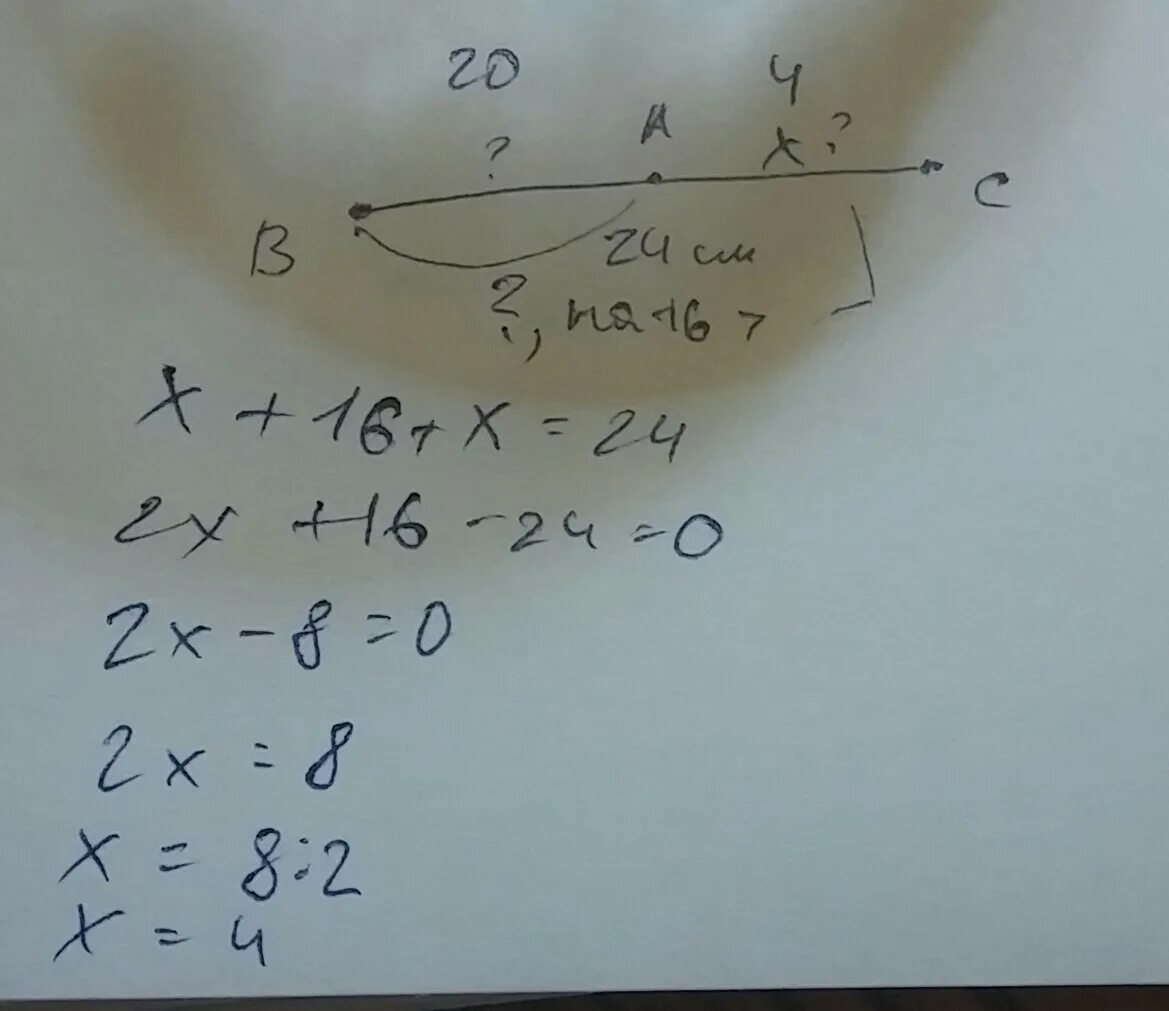 20 4
? А х ?
В С
24 см
?, на 16 >
х + 16 + х = 24
2х + 16 - 24 = 0
2х - 8 = 0
2х = 8
х = 8:2
х = 4